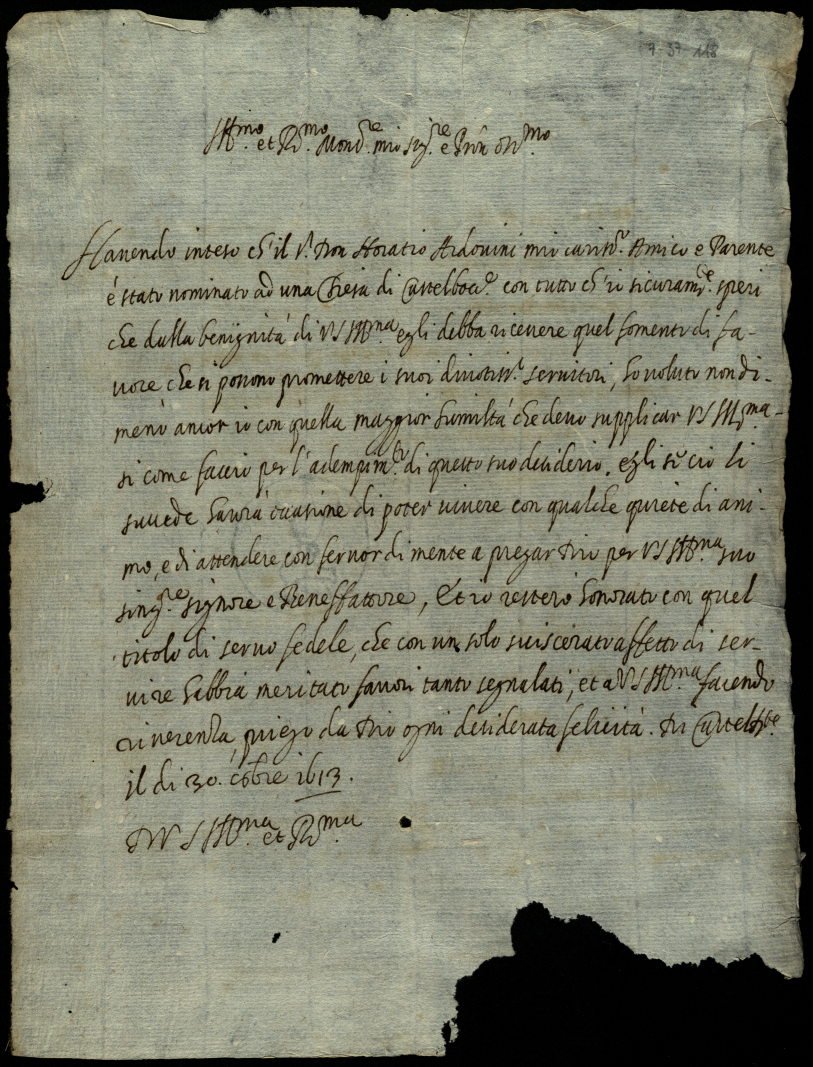 7-37-118
Ill.mo et R.mo Mons.re mio Sig.re e Pron Oss.mo
Havendo inteso ch'il S.r Don Horatio Ardovini mio cariss.o Amico e Parente
é stato nominato ad una Chiesa di con tutto ch'io sicuram.te speri
che dalla benignitá di VS Ill.ma egli debba ricevere quel fomento di fa-
vore che si possono promettere i suoi divotiss.i servitori, ho voluto nondi-
meno ancor io con quella maggior humiltá che devo supplicar VS Ill.ma
si come faccio per l'adempim.to di questo suo desiderio. egli se ció li
succede havrá occasione di poter vivere con qualche quiete di ani-
mo, e di attendere con fervor di mente a pregar Dio per VS Ill.ma suo
sing.re signore e Beneffattore, Et io resteró honorato con quel
titolo di servo fedele, che con un solo sviscerato affetto di ser-
vire habbia meritato favori tanto segnalati, et a VS Ill.ma facendo
riverenza, priego da Dio ogni desiderata felicitá. Di
il di 30. 1613.
D VS Ill.ma et R.ma